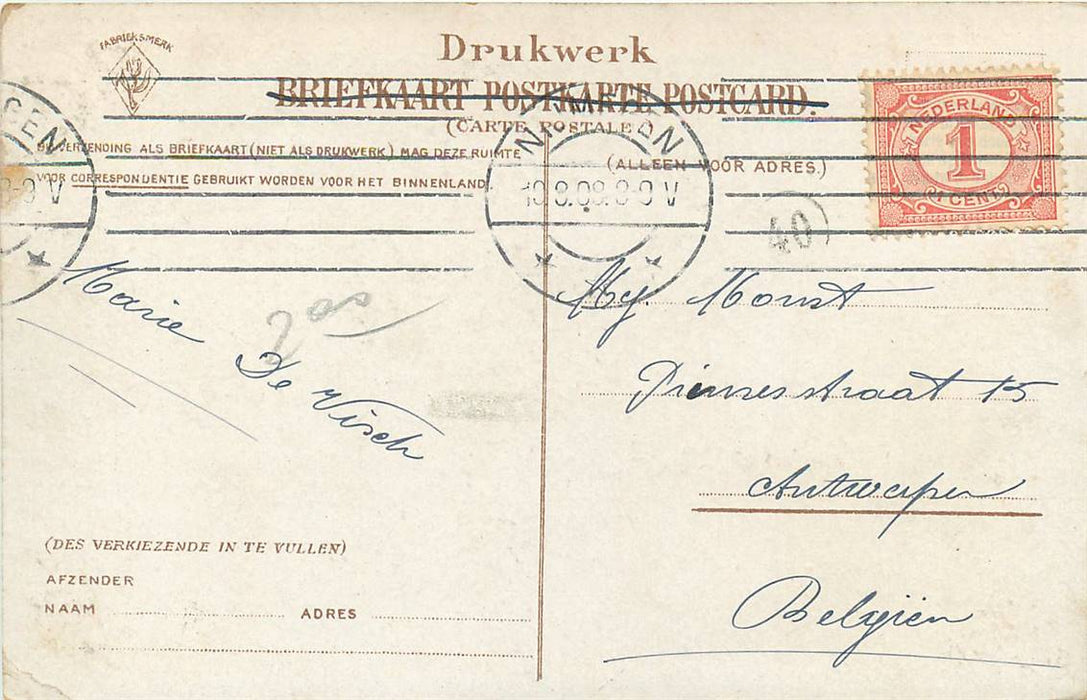 FABRIEKSMERK
Drukwerk
BRIEFKAART POSTKARTE POSTCARD.
(CARTE POSTALE)
BIJ VERZENDING ALS BRIEFKAART (NIET ALS DRUKWERK) MAG DEZE RUIMTE
VOOR CORRESPONDENTIE GEBRUIKT WORDEN VOOR HET BINNENLAND.
(ALLEEN VOOR ADRES.)
NEDERLAND
1
CENT
40
Marie
De Visch
Mej. Monst
straat 15
Antwerpen
Belgiën
(DES VERKIEZENDE IN TE VULLEN)
AFZENDER
NAAM
ADRES